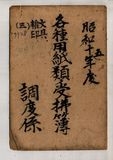 昭和十五年度
各種用紙類受拂簿
文具
箱印
(三)
調度係